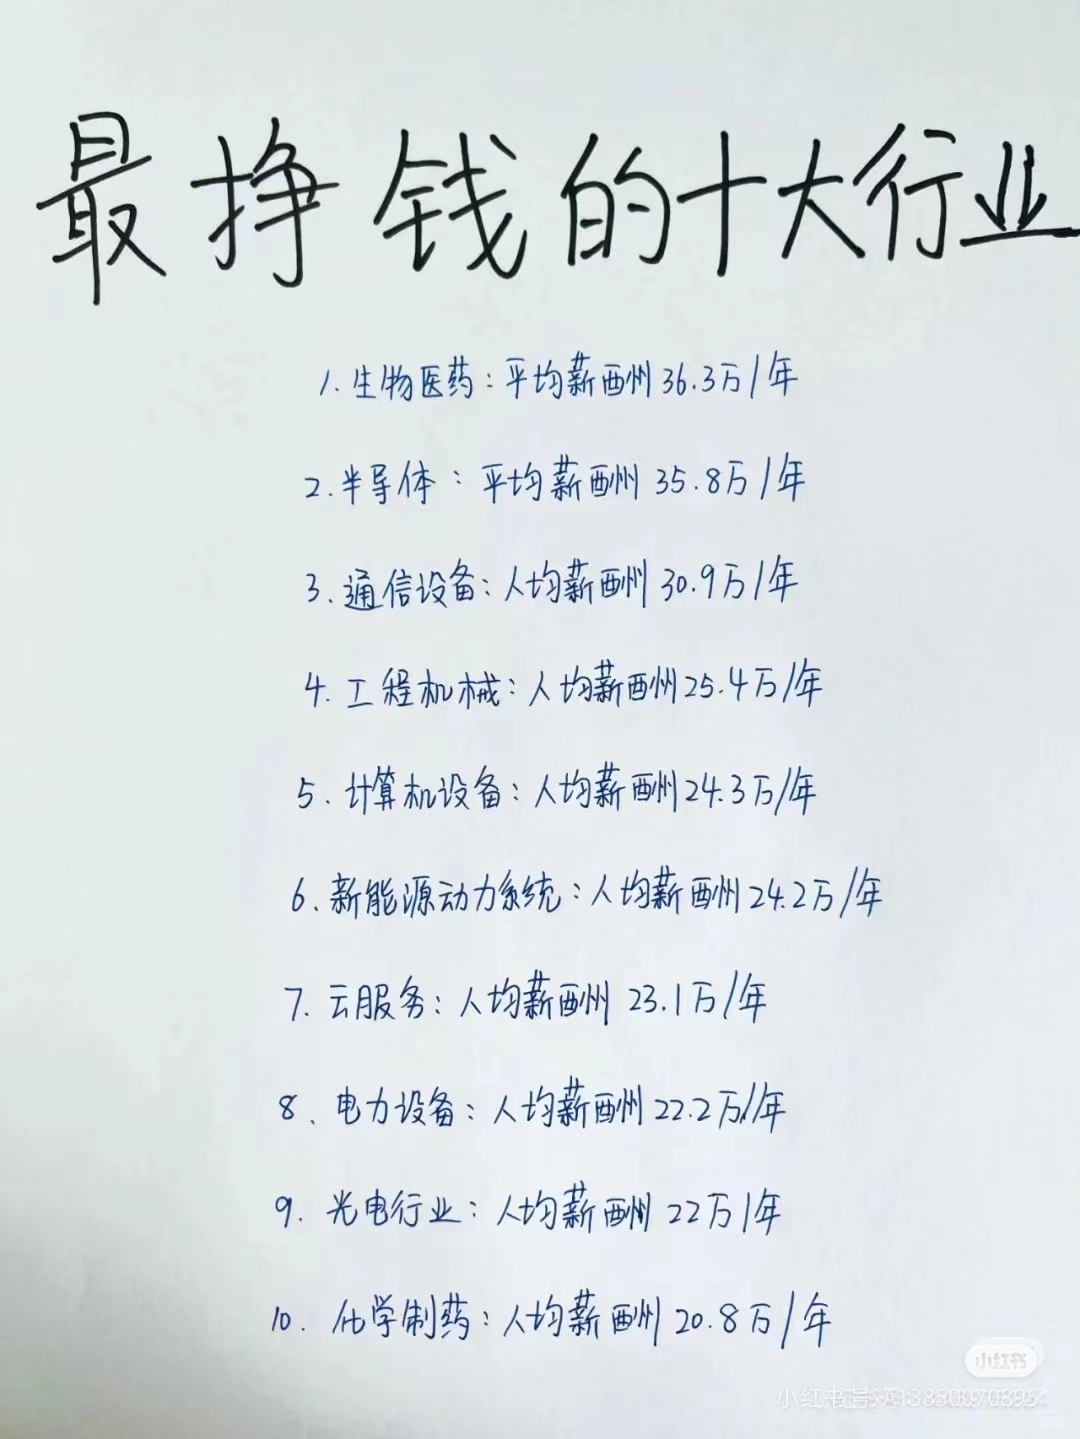 最挣钱的十大行业
1. 生物医药：平均薪酬36.3万/年
2. 半导体：平均薪酬35.8万/年
3. 通信设备：人均薪酬30.9万/年
4. 工程机械：人均薪酬25.4万/年
5. 计算机设备：人均薪酬24.3万/年
6、新能源动力系统：人均薪酬24.2万/年
7. 云服务：人均薪酬23.1万/年
8、电力设备：人均薪酬22.2万/年
9. 光电行业：人均薪酬22万/年
10. 化学制药：人均薪酬20.8万/年
小红书